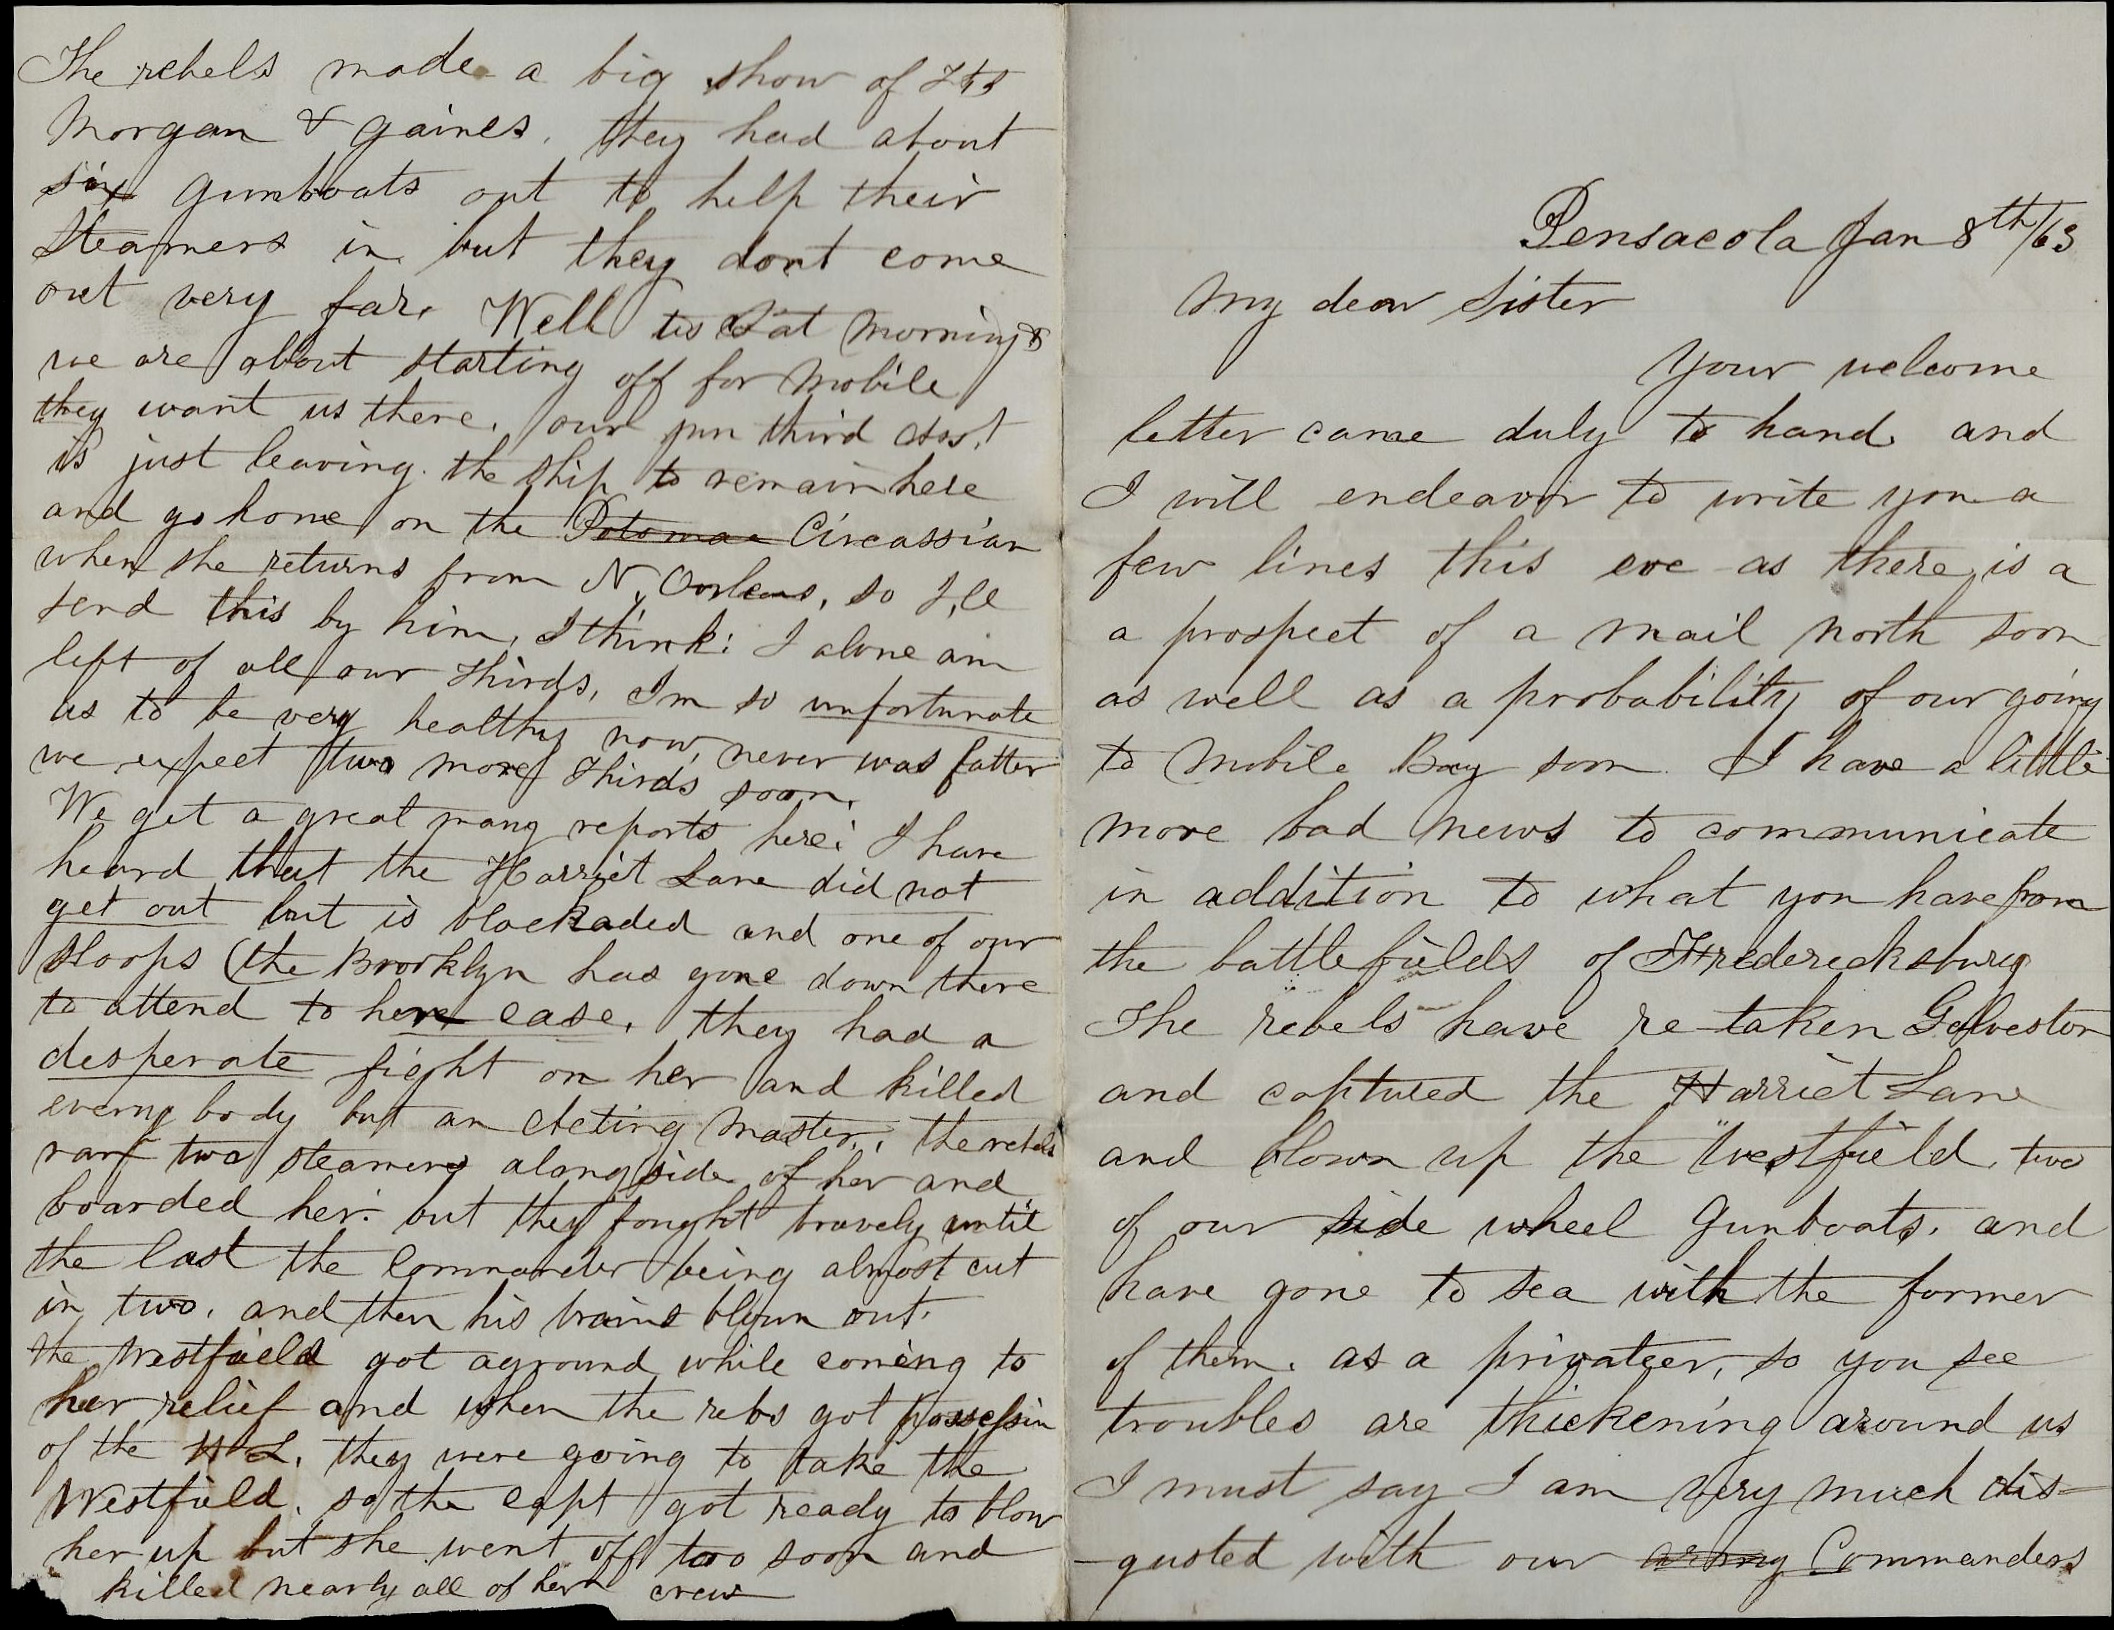 The rebels made a big show of Fts
Morgan & gaines. they had about
six gunboats out to help their
Steamers in but they dont come
out very far. Well tis Sat morning &
we are about starting off for Mobile
they want us there. our jun third Asst
is just leaving the ship to remain here
and go home on the Potomac Circassian
when she returns from N. Orleans, so I,ll
send this by him, I think: I alone am
left of all our thirds, I'm so unfortunate
as to be very healthy now, never was fatter
we expect two more thirds soon.
We get a great many reports here: I have
heard that the Harriet Lane did not
get out but is blockaded and one of our
sloops (the Brooklyn has gone down there
to attend to her case. they had a
desperate fight on her and killed
every body but an Acting Master. the rebels
ran two steamers along side of her and
boarded her: but they fought bravely until
the last the Commander being almost cut
in two. and then his brains blown out.
the Westfield got aground while coming to
her relief and when the rebs got possession
of the H L. they were going to take the
Westfield. so the capt got ready to blow
her up but she went off too soon and
killed nearly all of her crew
Pensacola Jan 8th/63
My dear Sister
Your welcome
letter came duly to hand and
I will endeavor to write you a
few lines this eve as there is a
a prospect of a mail north soon
as well as a probability of our going
to Mobile Bay soon. I have a little
more bad news to communicate
in addition to what you have from
the battlefields of Fredericksburg
The rebels have re-taken Galveston
and captured the Harriet Lane
and blown up the "Westfield, two
of our side wheel gunboats. and
have gone to sea with the former
of them. as a privateer, so you see
troubles are thickening around us
I must say I am very much dis-
-gusted with our army Commanders